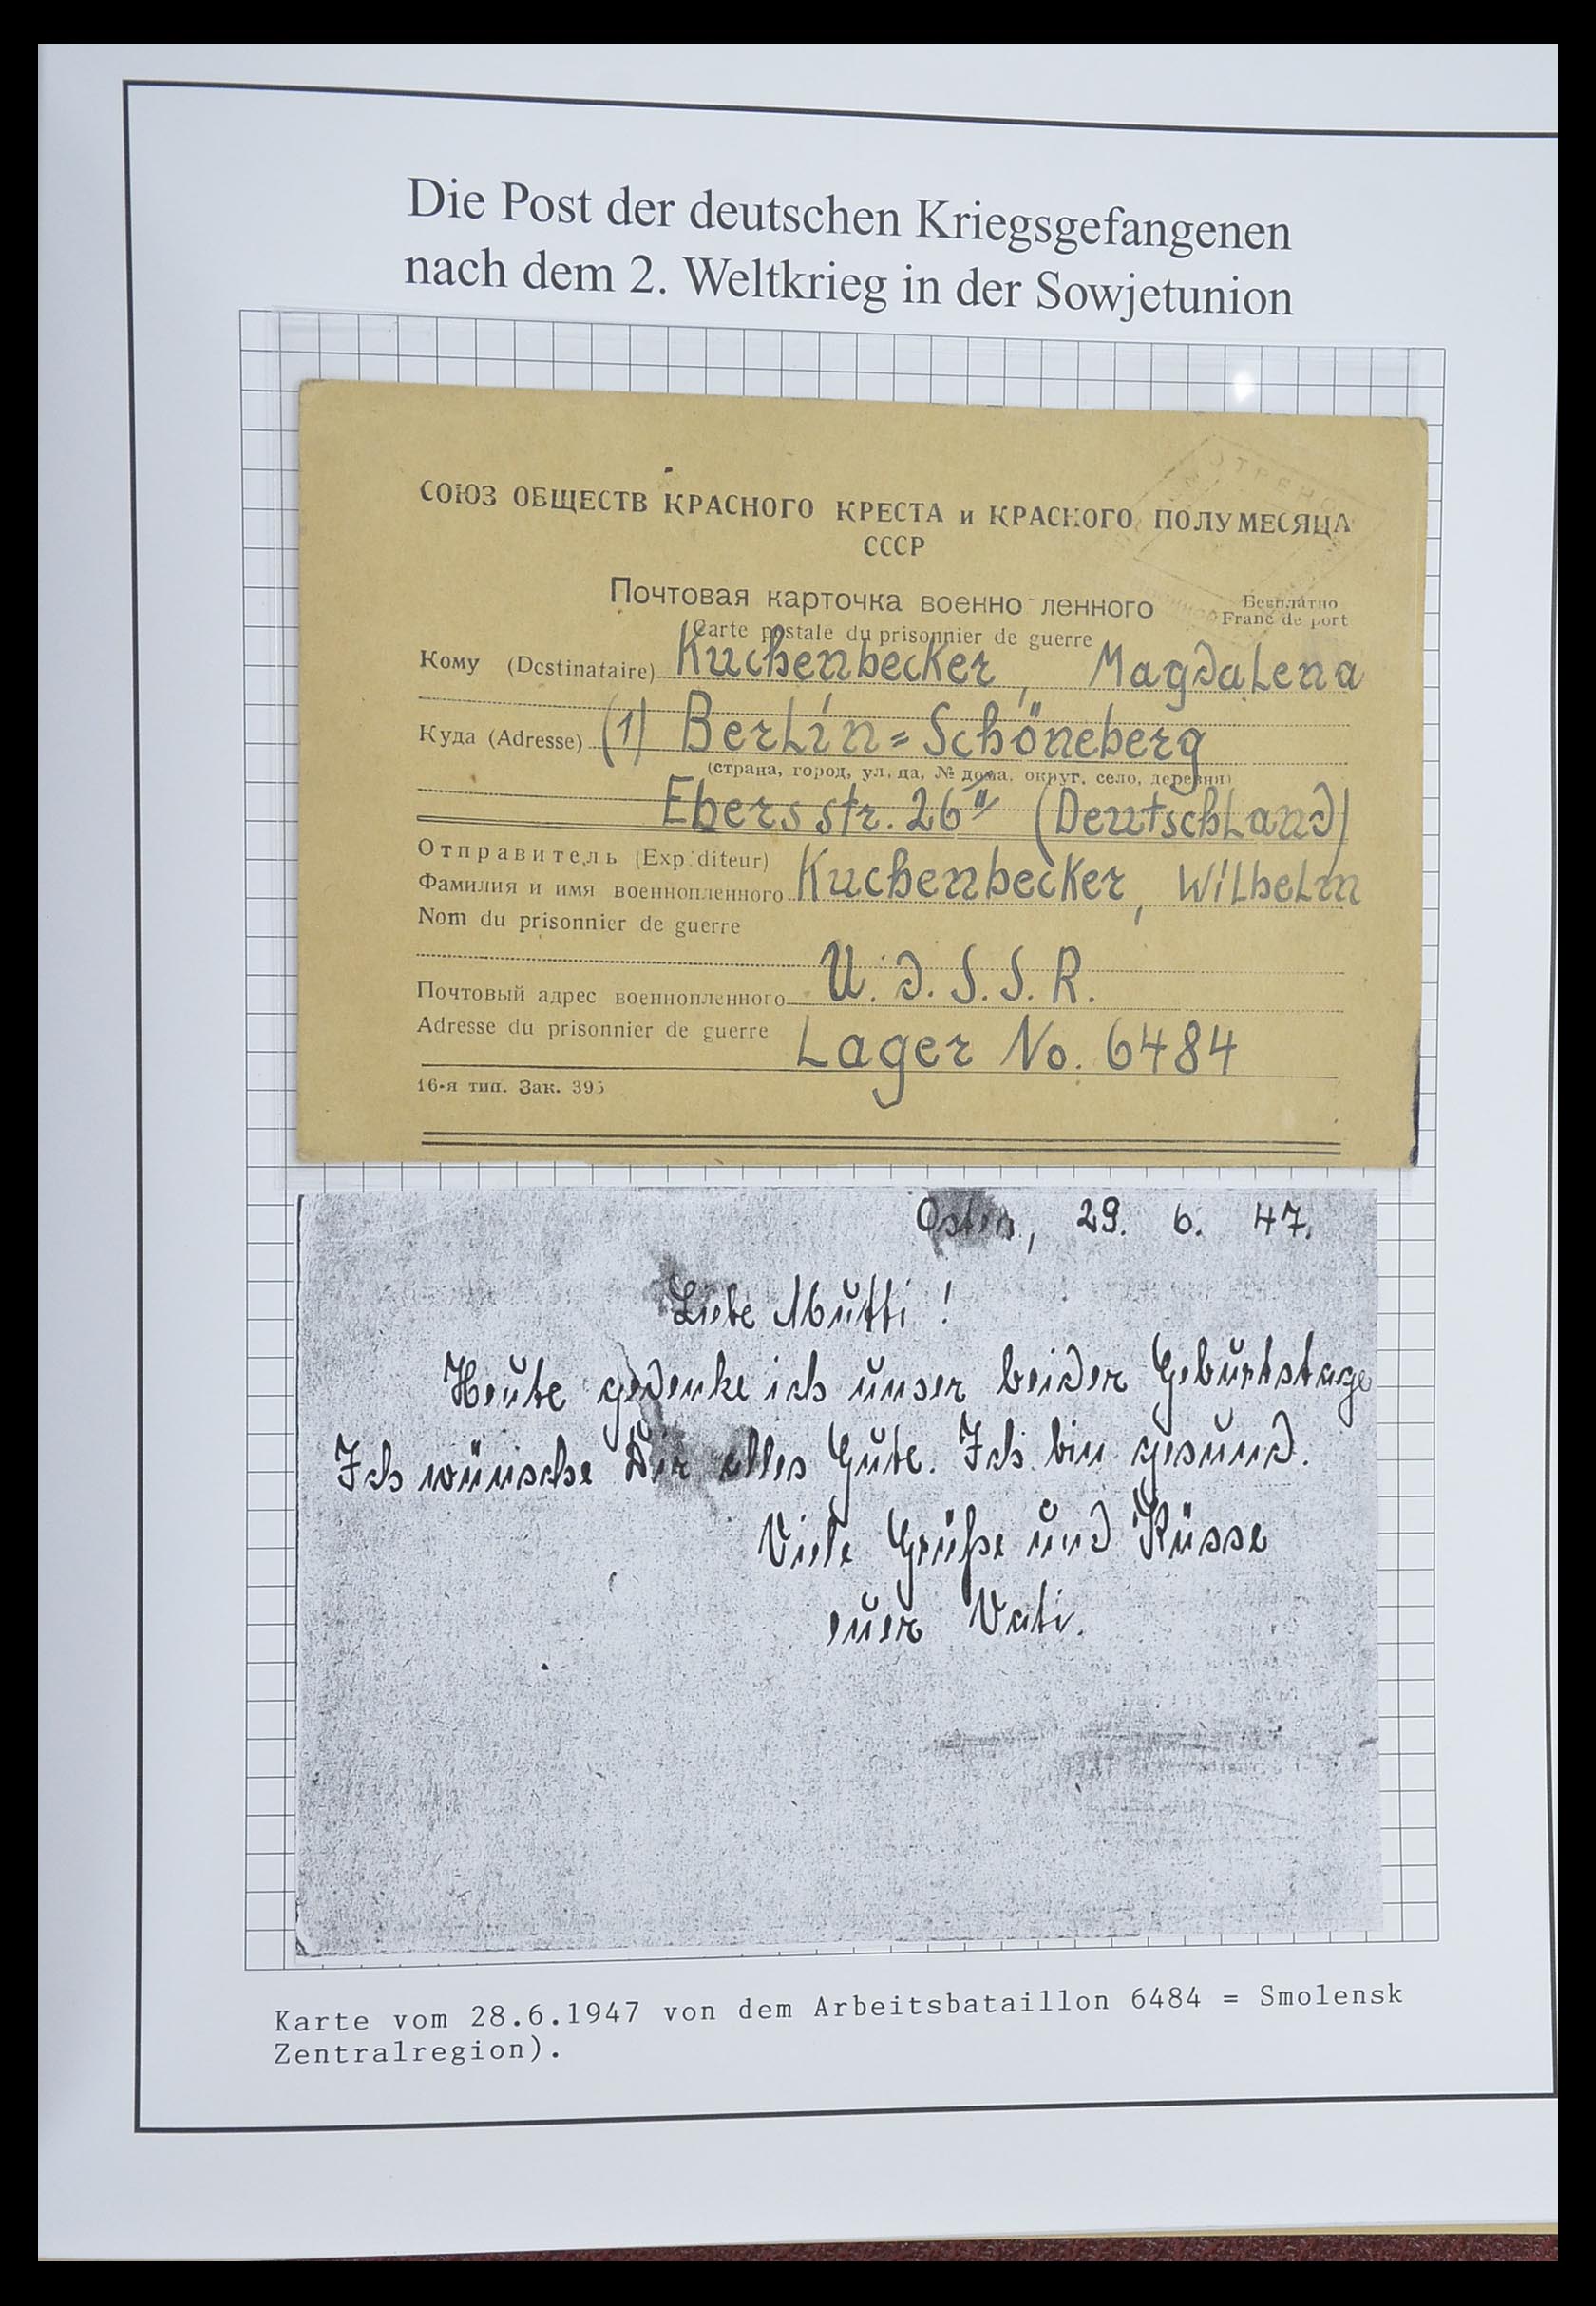 Die Post der deutschen Kriegsgefangenen
nach dem 2. Weltkrieg in der Sowjetunion
СОЮЗ ОБЩЕСТВ КРАСНОГО КРЕСТА и КРАСНОГО ПОЛУМЕСЯЦА
СССР
Почтовая карточка военно ленного
Бесплатно
Carte postale du prisonnier de guerre
Franc de port
Кому (Destinataire) Kuchenbecker, Magdalena
Куда (Adresse) (1) Berlin=Schöneberg
(страна, город, ул. ца, № дома, округ, село, деревня)
Ebersstr. 26 (Deutschland)
Отправитель (Exp diteur)
Фамилия и имя военнопленного Kuchenbecker, Wilhelm
Nom du prisonnier de guerre
U. d. S. S. R.
Почтовый адрес военнопленного
Adresse du prisonnier de guerre
Lager No. 6484
16-я тип. Зак. 395
Osten, 29. 6. 47.
Liebe Mutti!
Heute gedenke ich unser beider Geburtstage
Ich wünsche Dir alles Gute. Ich bin gesund.
Viele Grüße und Küsse
euer Vati.
Karte vom 28.6.1947 von dem Arbeitsbataillon 6484 = Smolensk
Zentralregion).